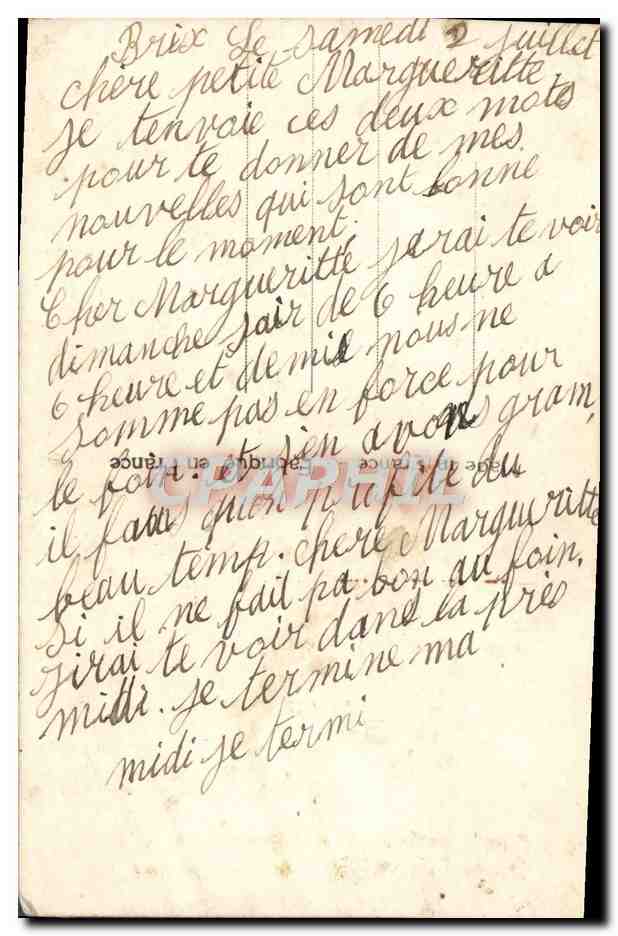 Brix Le samedi 2 juillet
chere petite Margueritte,
je tenvoie ces deux mots
pour te donner de mes
nouvelles qui sont bonne
pour le moment.
Cher Margueritte jerai te voir
dimanche soir de 6 heure a
6 heure et demie nous ne
somme pas en force pour
le foin. et jen avons gram,
il faus quon
beau temp. chere Margueritte
si il ne fait pa bon au foin.
jirai te voir dans la près
midi. je termine ma
midi je termi
Fabriqué en France
CPAPHIL